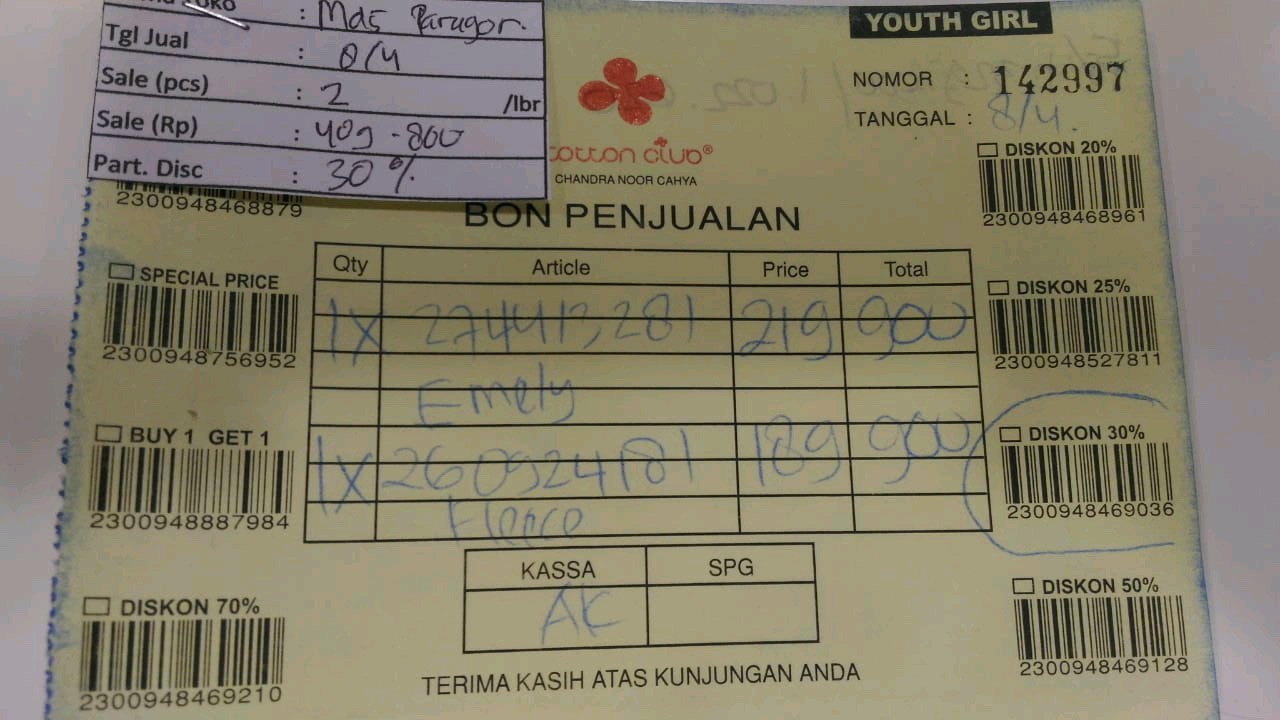 : Mds Paragon.
Tgl Jual : 8/4
Sale (pcs) : 2 /lbr
Sale (Rp) : 409-800
Part. Disc : 30%
YOUTH GIRL
NOMOR : 142997
TANGGAL : 8/4.
cotton club®
CHANDRA NOOR CAHYA
BON PENJUALAN
2300948468879
DISKON 20%
2300948468961
SPECIAL PRICE
2300948756952
DISKON 25%
2300948527811
BUY 1 GET 1
2300948887984
DISKON 30%
2300948469036
DISKON 70%
2300948469210
DISKON 50%
2300948469128
Qty Article Price Total
1X 274413281 219 900
Emely
1X 260924181 189 900
KASSA SPG
AK
TERIMA KASIH ATAS KUNJUNGAN ANDA